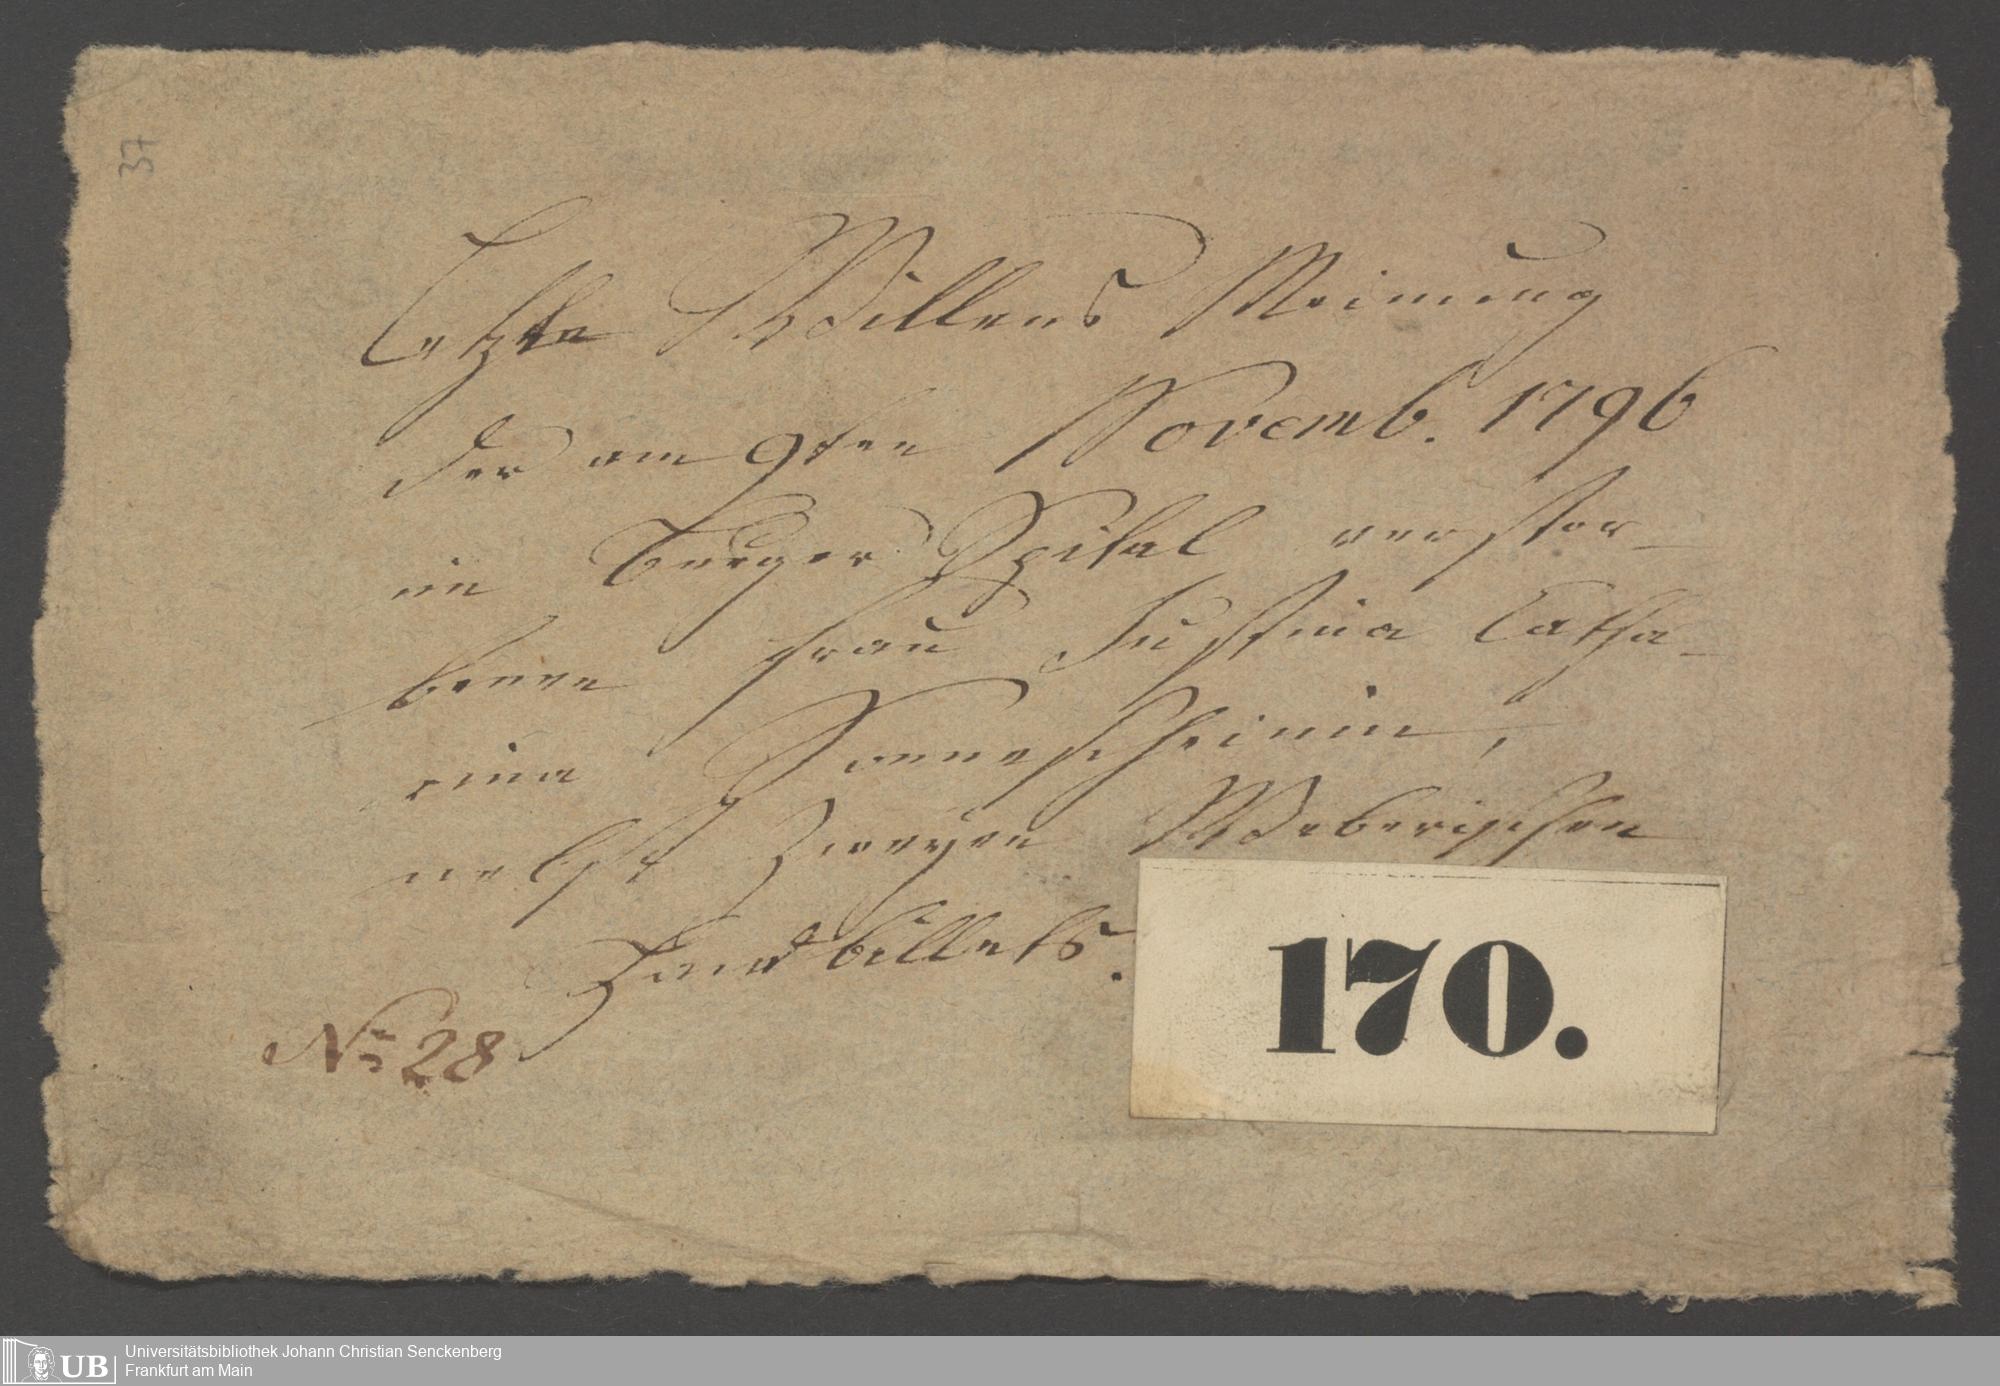 37
Letzte Willens Meinung
der am 9ten Novemb. 1796
im Bürger Spital verstor-
benen Frau Justina Catha-
rina Sonnescheinin,
nebst zweyen Weberischen
Handbillets.
No 28
170.
UB
Universitätsbibliothek Johann Christian Senckenberg
Frankfurt am Main